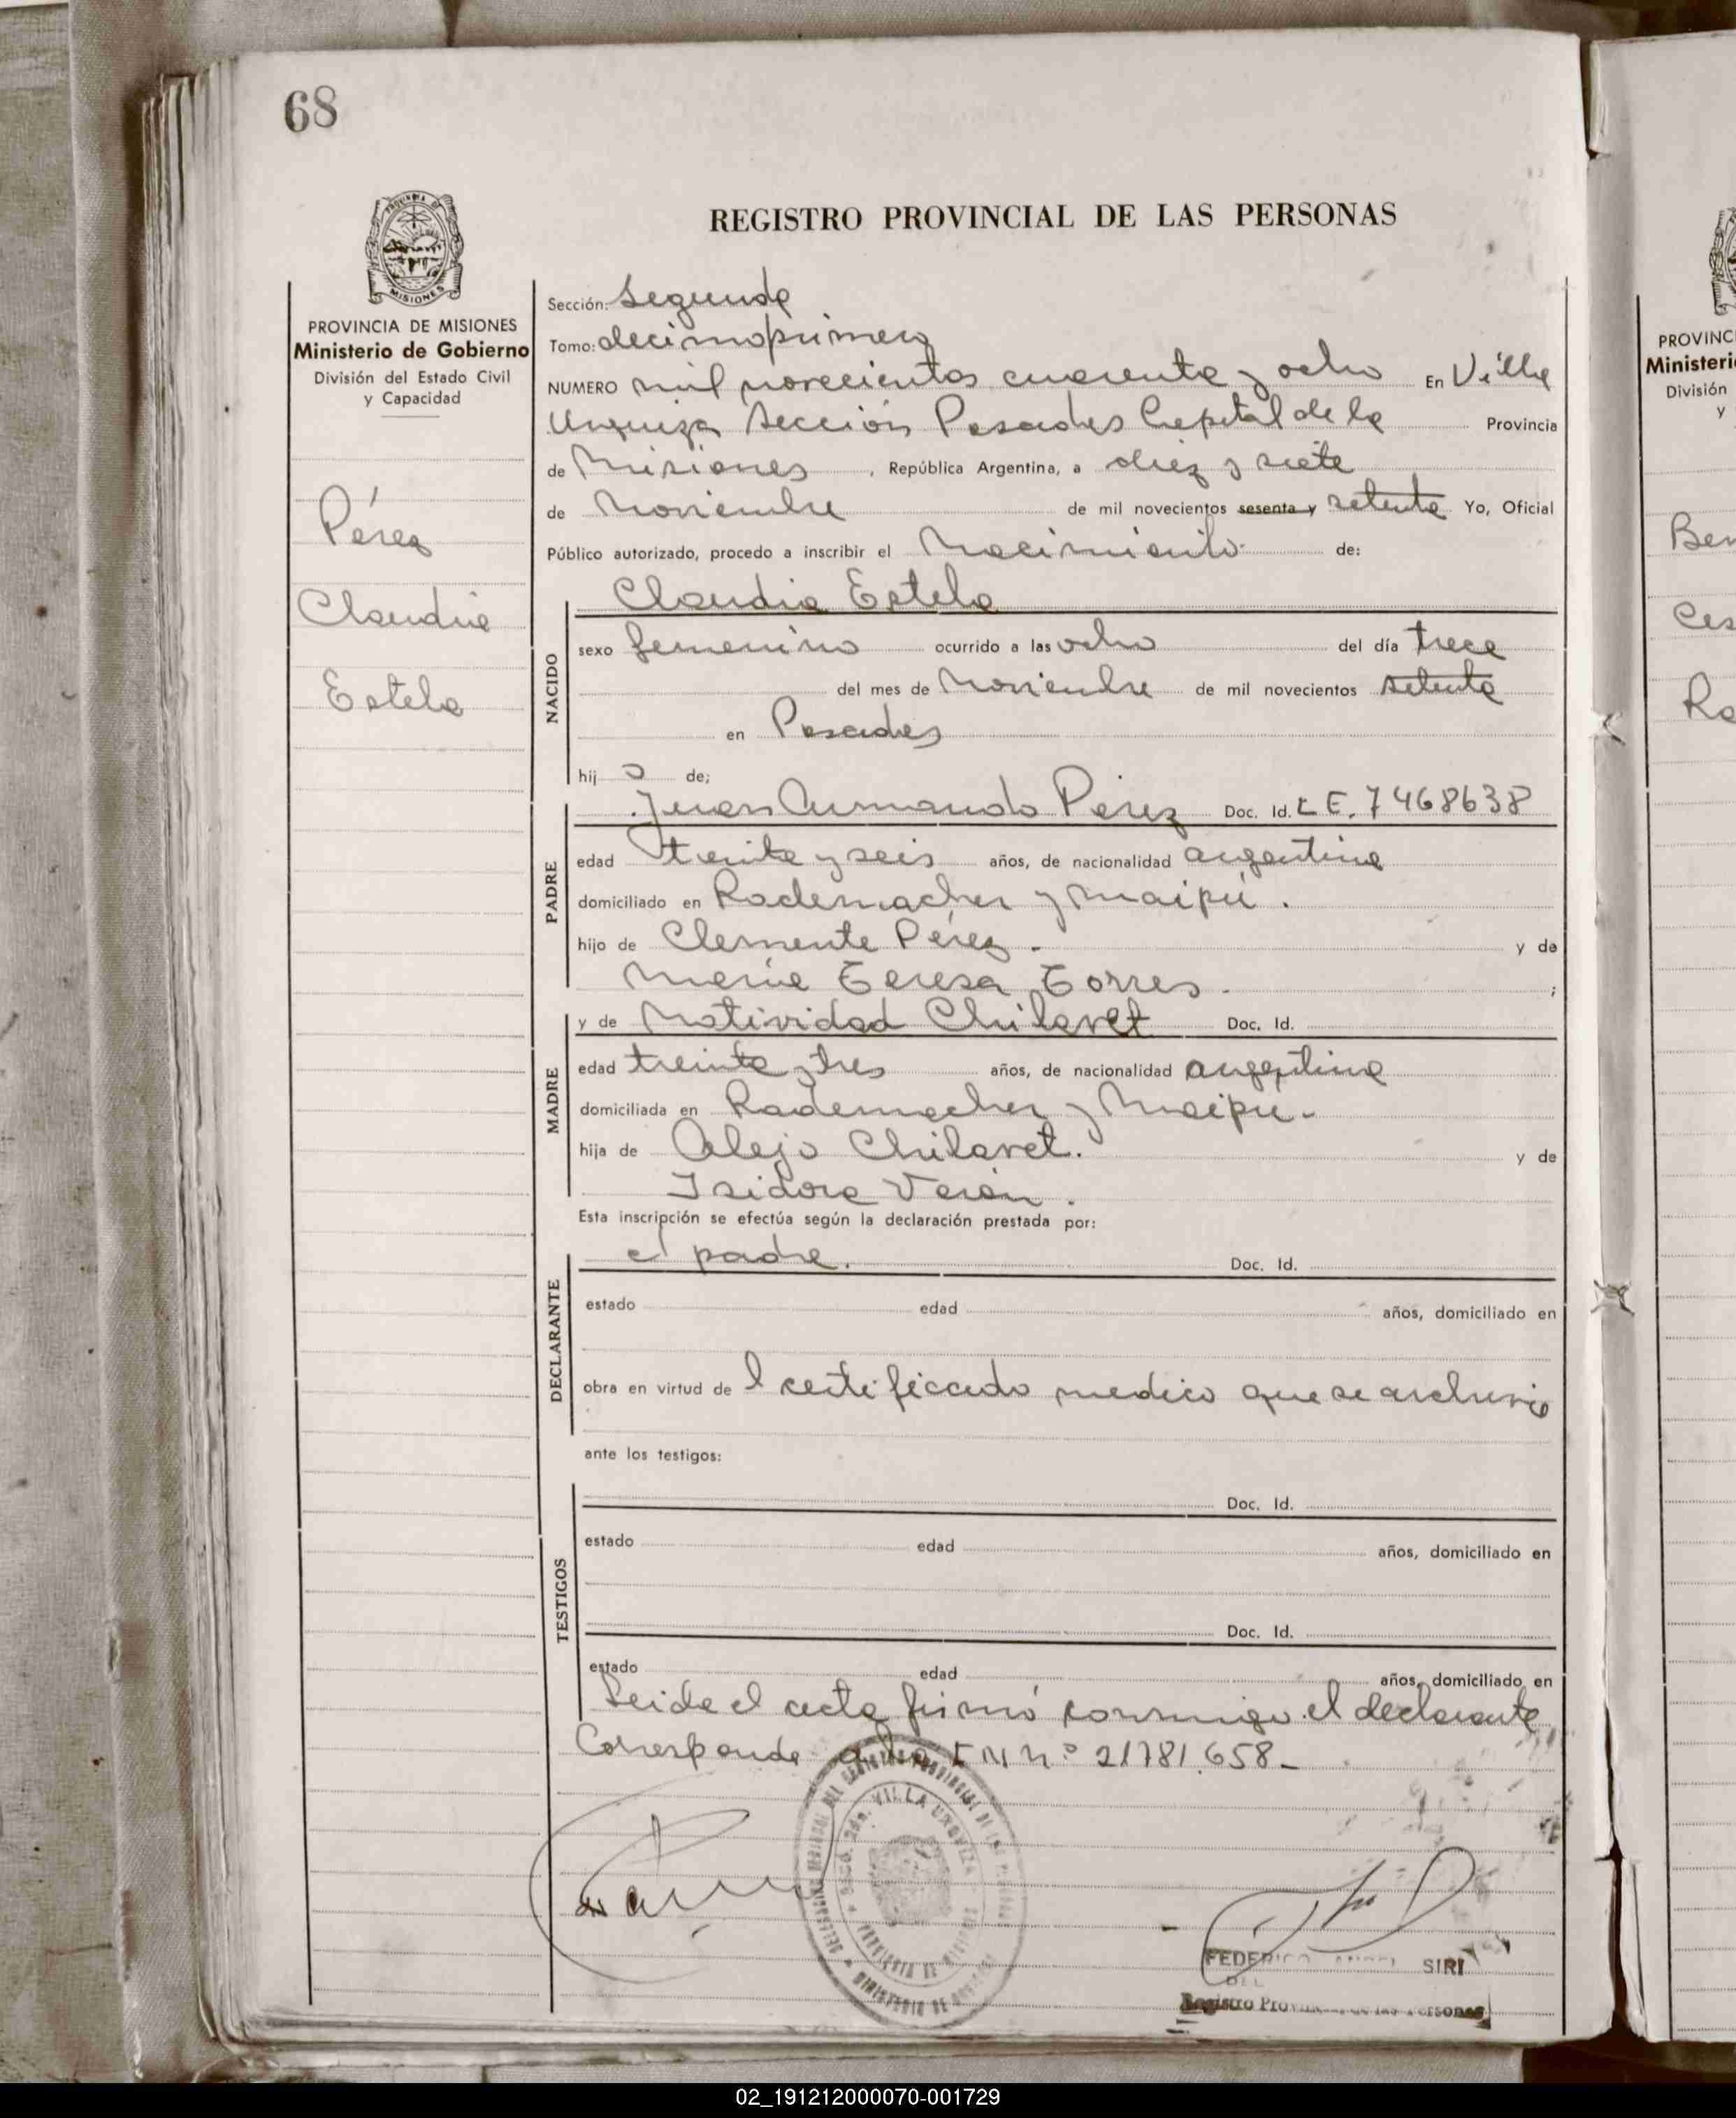 68
REGISTRO PROVINCIAL DE LAS PERSONAS
MISIONES
PROVINCIA DE MISIONES
Ministerio de Gobierno
División del Estado Civil
y Capacidad
Pérez
Claudia
Estela
Sección: Segunda
Tomo: decimoprimero
NUMERO mil novecientos cuarenta y ocho En Villa
Urquiza Sección Posadas Capital de la Provincia
de Misiones, República Argentina, a diez y siete
de Noviembre de mil novecientos sesenta y setenta Yo, Oficial
Público autorizado, procedo a inscribir el Nacimiento de:
Claudia Estela
NACIDO
sexo femenino ocurrido a las ocho del día trece
del mes de Noviembre de mil novecientos setenta
en Posadas
hij a de;
PADRE
Juan Armando Pérez Doc. Id. L E. 7468638
edad treinta y seis años, de nacionalidad argentina
domiciliado en Rademacher y Maipú.
hijo de Clemente Pérez. y de
María Teresa Torres. ;
MADRE
y de Natividad Chilavert Doc. Id.
edad treinta y tres años, de nacionalidad argentina
domiciliada en Rademacher y Maipú.
hija de Alejo Chilavert. y de
Isidora Verón.
Esta inscripción se efectúa según la declaración prestada por:
DECLARANTE
el padre. Doc. Id.
estado edad años, domiciliado en
obra en virtud de l certificado medico que se archiva
ante los testigos:
TESTIGOS
Doc. Id.
estado edad años, domiciliado en
Doc. Id.
estado edad años, domiciliado en
Leida el acta firmó conmigo el declarante,
Corresponde a la E N n° 21781.658-
VILLA URQUIZA
PROVINCIA DE MISIONES
MINISTERIO DE GOBIERNO
FEDERICO ANGEL SIRI
DEL
Registro Provincial de las Personas
PROVINC
Ministeri
División
y
Ben
Ces
Ra
02_191212000070-001729